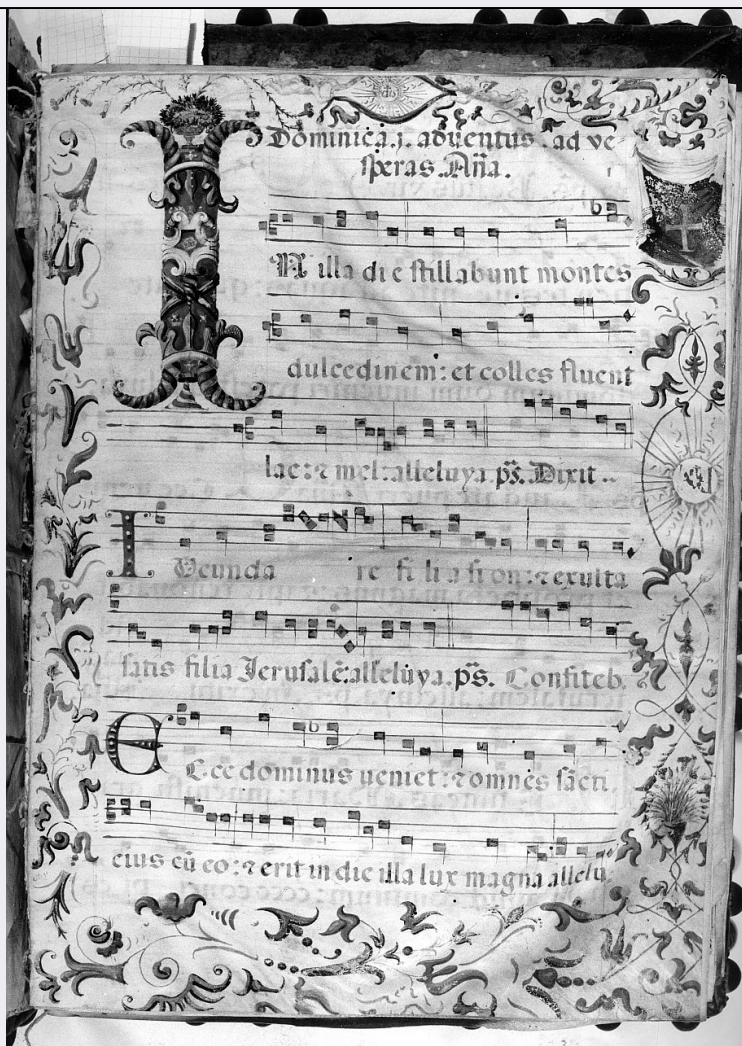 Dominica .j. aduentus . ad ve-
speras. Aña.
IN illa die stillabunt montes
dulcedinem: et colles fluent
lac: ⁊ mel: alleluya. p̃s. Dixit ..
Iocunda re fi li a sion: ⁊ exulta
satis filia Jerusalẽ: alleluya. p̃s. Confiteb.
Ecce dominus ueniet: ⁊ omnes sãcti.
eius cũ eo: ⁊ erit in die illa lux magna allelu